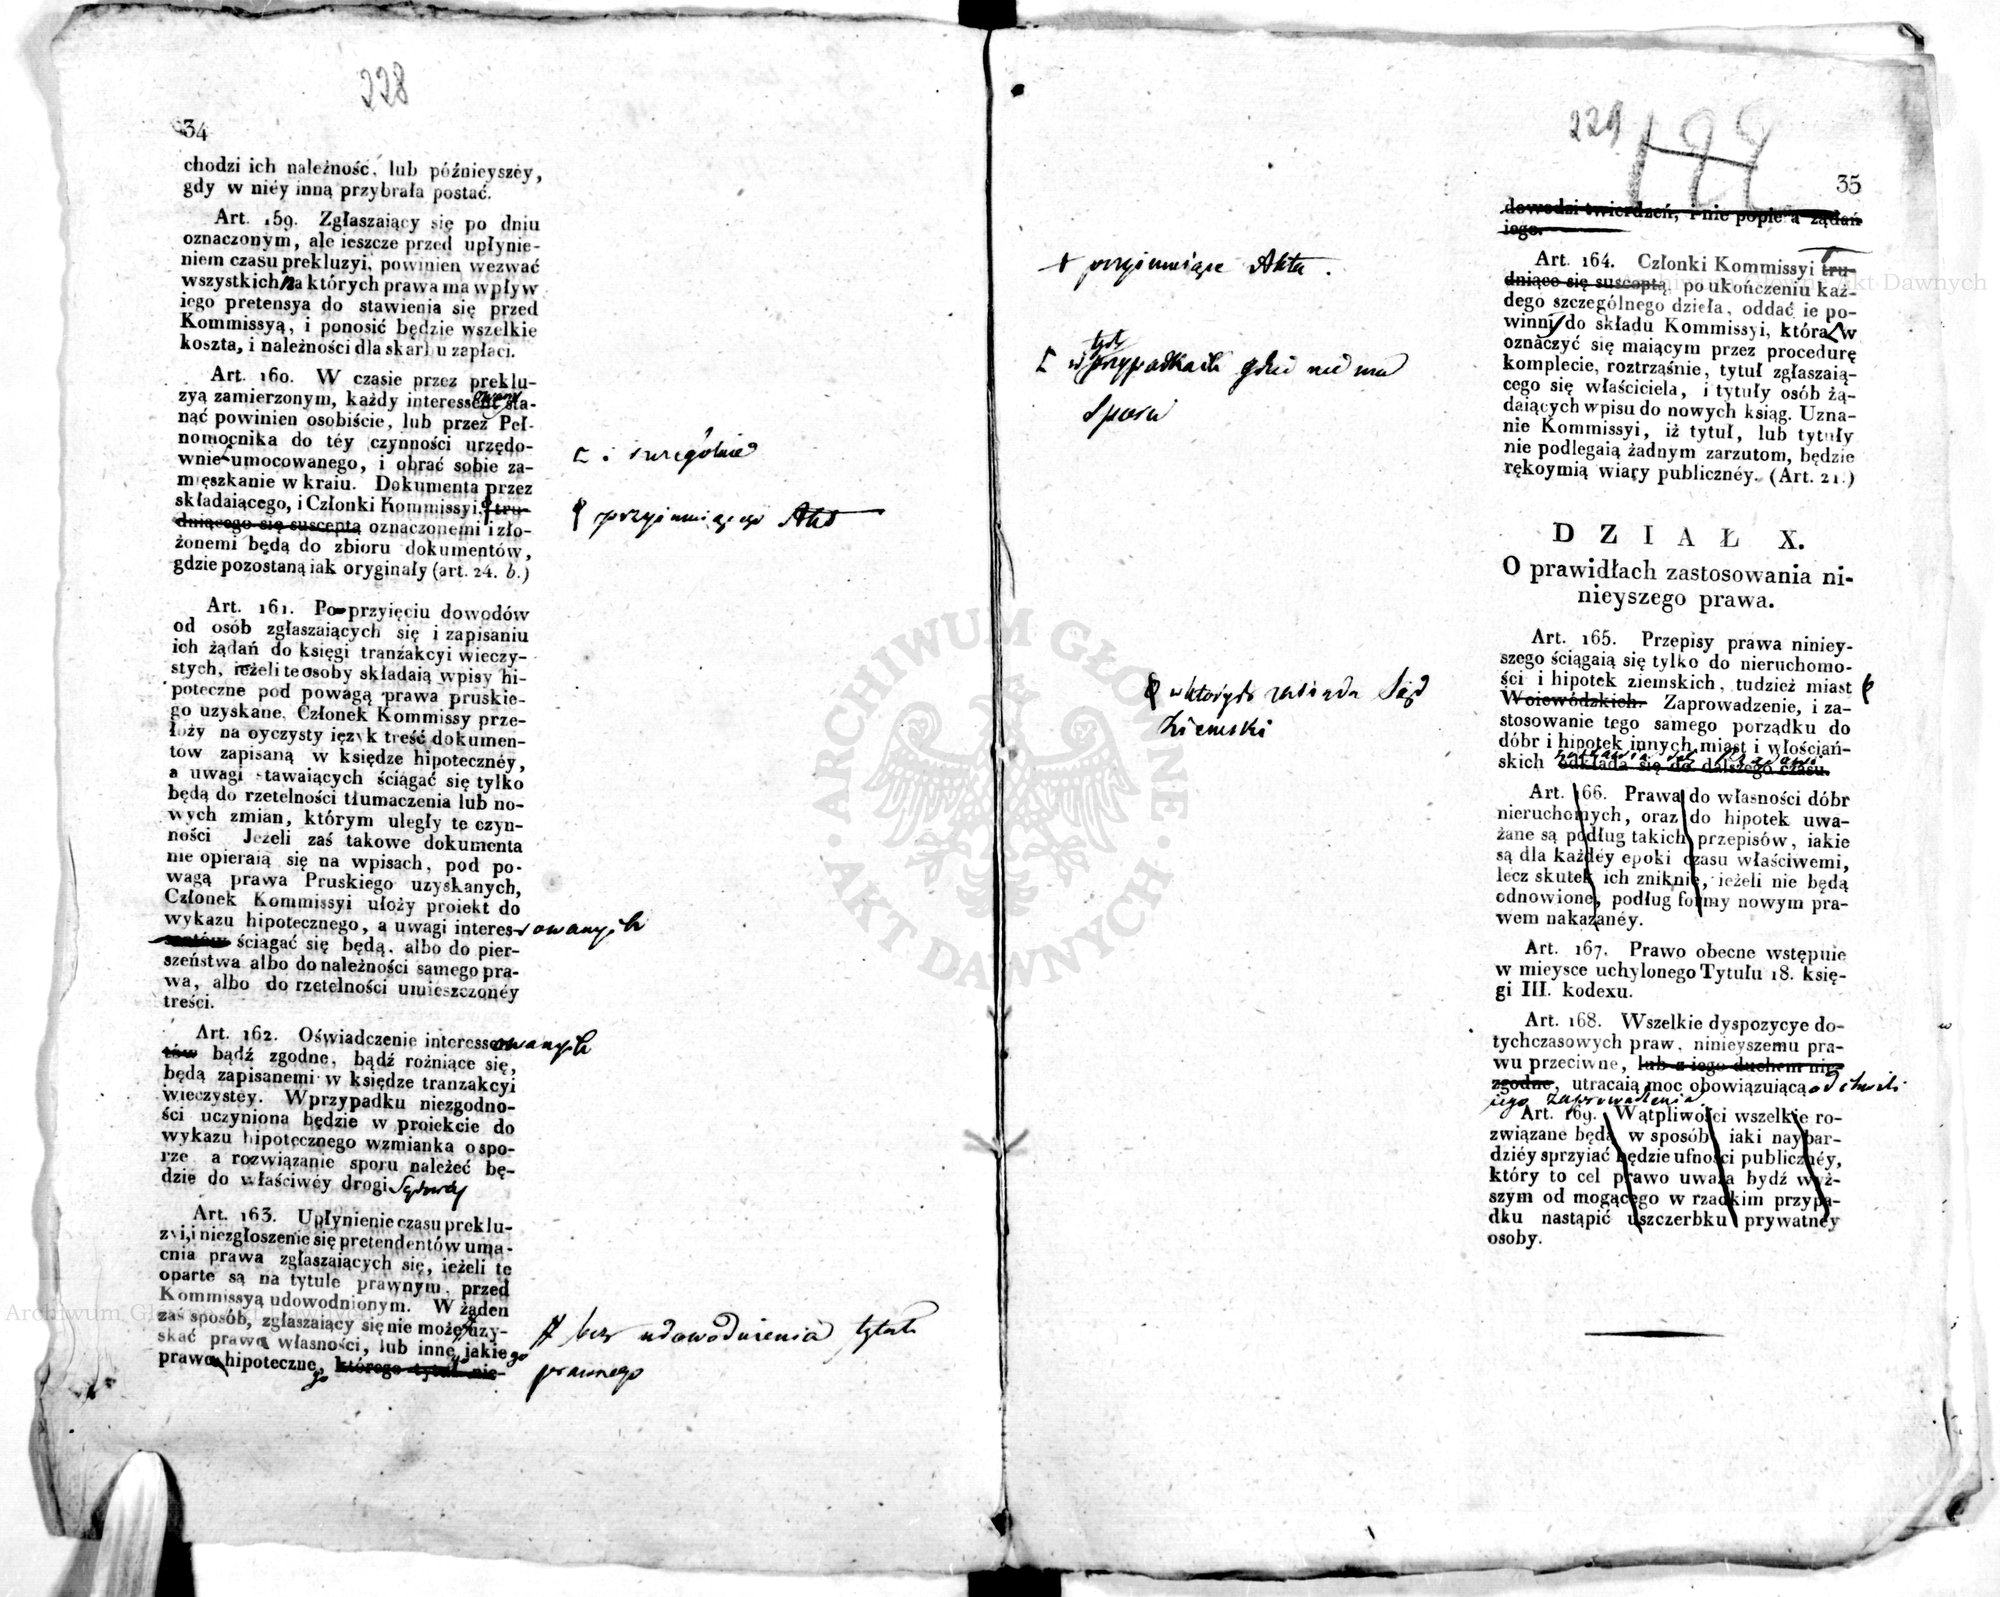 228
34
chodzi ich należność, lub późnieyszéy,
gdy w niéy inną przybrała postać.
Art. 159. Zgłaszaiący się po dniu
oznaczonym, ale ieszcze przed upłynie-
niem czasu prekluzyi, powinien wezwać
wszystkich na których prawa ma wpływ
iego pretensya do stawienia się przed
Kommissyą, i ponosić będzie wszelkie
koszta, i należności dla skarbu zapłaci.
Art. 160. W czasie przez preklu-
zyą zamierzonym, każdy interessent sta-
owany
nąć powinien osobiście, lub przez Peł-
nomocnika do téy czynności urzędo-
wnie umocowanego, i obrać sobie za-
mięszkanie w kraiu. Dokumenta przez
składaiącego, i Członki Kommissyi, tru-
dniącego się susceptą oznaczonemi i zło-
żonemi będą do zbioru dokumentów,
gdzie pozostaną iak oryginały (art. 24. b.)
i szczególnie
przyimuiącego Akt
Art. 161. Po przyięciu dowodów
od osób zgłaszaiących się i zapisaniu
ich żądań do księgi tranzakcyi wieczy-
stych, ieżeli te osoby składaią wpisy hi-
poteczne pod powagą prawa pruskie-
go uzyskane, Członek Kommissy prze-
łoży na oyczysty ięzyk treść dokumen-
tów zapisaną w księdze hipotecznéy,
a uwagi stawaiących ściągać się tylko
będą do rzetelności tłumaczenia lub no-
wych zmian, którym uległy te czyn-
ności Jeżeli zaś takowe dokumenta
nie opieraią się na wpisach, pod po-
wagą prawa Pruskiego uzyskanych,
Członek Kommissyi ułoży proiekt do
wykazu hipotecznego, a uwagi interes-sowanych
sentów ściągać się będą, albo do pier-
szeństwa albo do należności samego pra-
wa, albo do rzetelności umieszczonéy
treści.
Art. 162. Oświadczenie interessen owanych
tów bądź zgodne, bądź rożniące się,
będą zapisanemi w księdze tranzakcyi
wieczystéy. W przypadku niezgodno-
ści uczyniona będzie w proiekcie do
wykazu hipotecznego wzmianka o spo-
rze a rozwiązanie sporu należeć bę-
dzie do właściwéy drogi Sądowéy
Art. 163. Upłynienie czasu preklu-
zyi, i niezgłoszenie się pretendentów uma-
cnia prawa zgłaszaiących się, ieżeli te
oparte są na tytule prawnym, przed
Kommissyą udowodnionym. W żaden
zaś sposób, zgłaszaiący się nie może uzy-
skać prawa własności, lub innego jakiego
prawa hipotecznego, którego tytuł nie-
# bez udowodnienia tytułu
prawnego
229
122
35
dowodzi twierdzeń, i nie popiera żądań
iego.
+ przyimuiące Akta.
Art. 164. Członki Kommissyi tru-
dniące się susceptą, po ukończeniu każ-
dego szczególnego dzieła, oddać ie po-
winni do składu Kommissyi, która w
oznaczyć się maiącym przez procedurę
komplecie, roztrząśnie, tytuł zgłaszaią-
cego się właściciela, i tytuły osób żą-
daiących wpisu do nowych ksiąg. Uzna-
nie Kommissyi, iż tytuł, lub tytuły
nie podlegaią żadnym zarzutom, będzie
rękoymią wiary publicznéy. (Art. 21.)
tych
w przypadkach gdzie nie ma
Sporu
DZIAŁ X.
O prawidłach zastosowania ni-
nieyszego prawa.
Art. 165. Przepisy prawa niniey-
szego ściągaią się tylko do nieruchomo-
ści i hipotek ziemskich, tudzież miast
Woiewódzkich. Zaprowadzenie, i za-
stosowanie tego samego porządku do
dóbr i hipotek innych miast i włościań-
skich odkłada się do dalszego czasu.
w których zasiada Sąd
Ziemski
Art. 166. Prawa do własności dóbr
nieruchomych, oraz do hipotek uwa-
żane są podług takich przepisów, iakie
są dla każdéy epoki czasu właściwemi,
lecz skutek ich zniknie, ieżeli nie będą
odnowione, podług formy nowym pra-
wem nakazanéy.
Art. 167. Prawo obecne wstępuie
w mieysce uchylonego Tytułu 18. księ-
gi III. kodexu.
Art. 168. Wszelkie dyspozycye do-
tychczasowych praw, ninieyszemu pra-
wu przeciwne, lub z iego duchem nie-
zgodne, utracaią moc obowiązuiącą od chwili
iego zaprowadzenia
Art. 169. Wątpliwości wszelkie ro-
związane będą w sposób iaki naybar-
dziéy sprzyiać będzie ufności publicznéy,
który to cel prawo uważa bydź wyż-
szym od mogącego w rzadkim przypa-
dku nastąpić uszczerbku prywatnéy
osoby.
ARCHIWUM GŁÓWNE · AKT DAWNYCH ·
Archiwum Główne Akt Dawnych